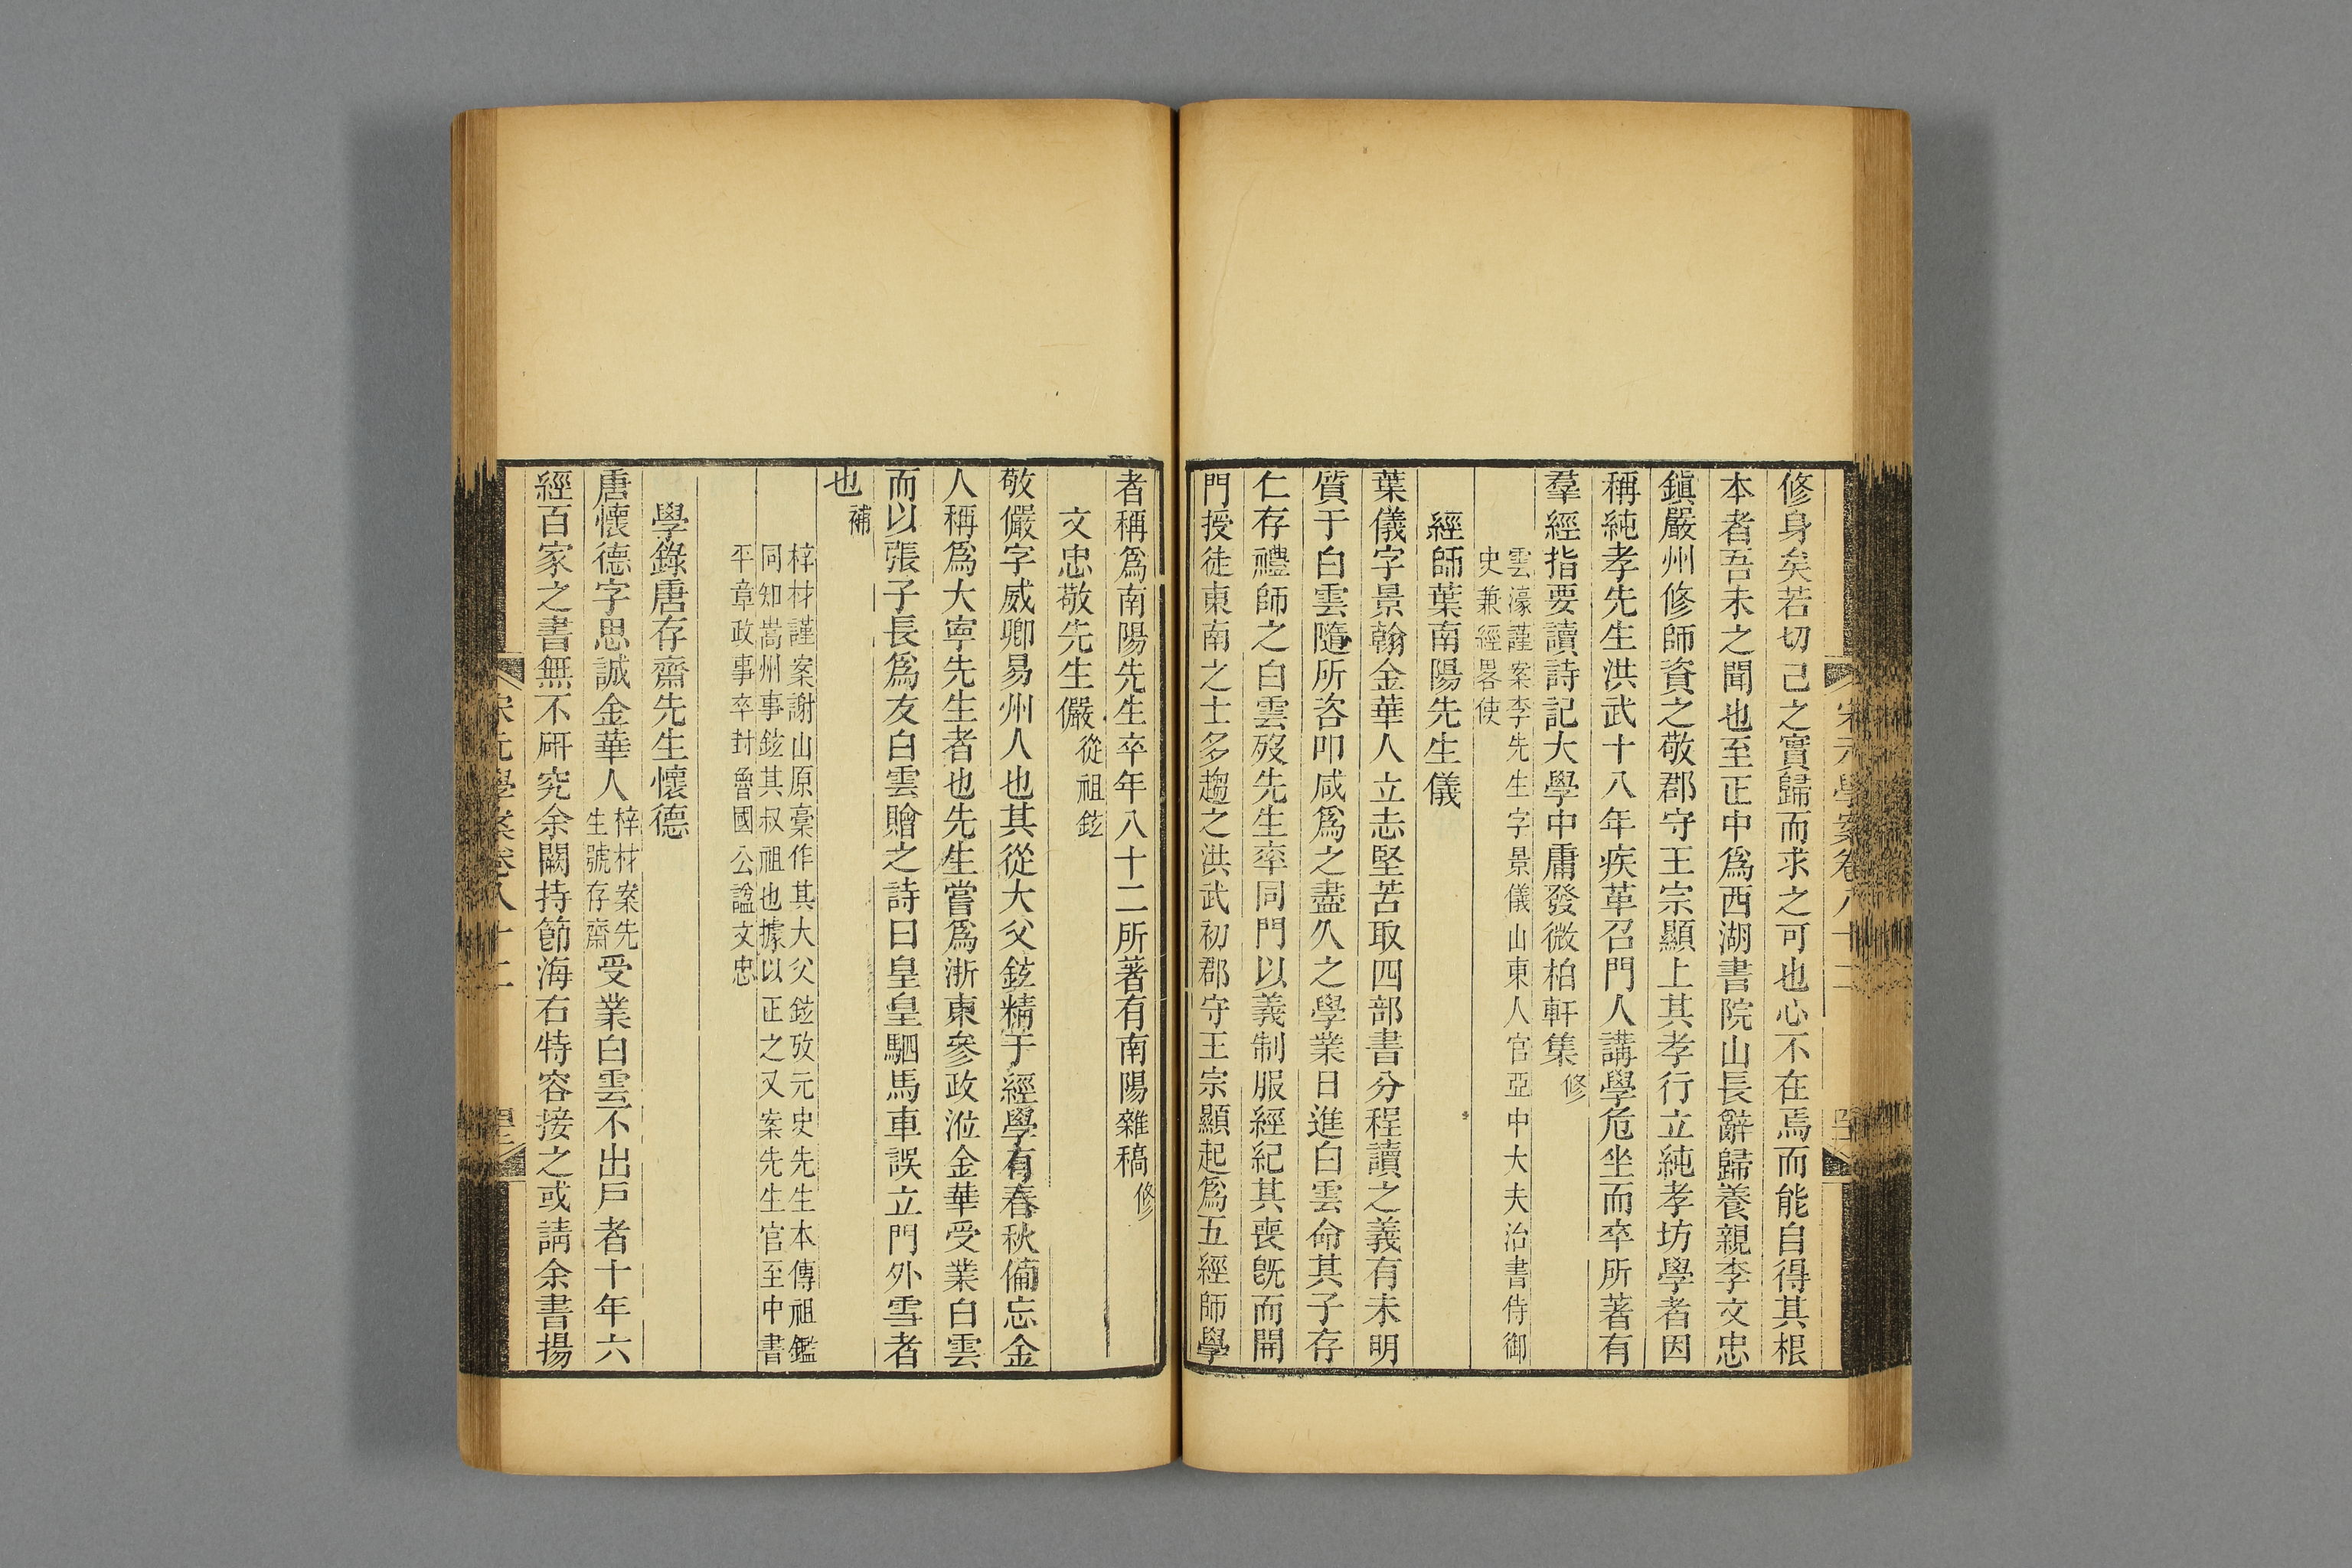 修身矣若切己之實歸而求之可也心不在焉而能自得其根
本者吾未之聞也至正中爲西湖書院山長辭歸養親李文忠
鎭嚴州修師資之敬郡守王宗顯上其孝行立純孝坊學者因
稱純孝先生洪武十八年疾革召門人講學危坐而卒所著有
羣經指要讀詩記大學中庸發微柏軒集修
雲濠謹案李先生字景儀山東人官亞中大夫治書侍御
史兼經畧使
經師葉南陽先生儀
葉儀字景翰金華人立志堅苦取四部書分程讀之義有未明
質于白雲隨所咨叩咸爲之盡久之學業日進白雲命其子存
仁存禮師之白雲歿先生率同門以義制服經紀其喪旣而開
門授徒東南之士多趨之洪武初郡守王宗顯起爲五經師學
者稱爲南陽先生卒年八十二所著有南陽雜稿修
文忠敬先生儼從祖鉉
敬儼字威卿易州人也其從大父鉉精于經學有春秋備忘金
人稱爲大寧先生者也先生嘗爲浙東參政涖金華受業白雲
而以張子長爲友白雲贈之詩曰皇皇駟馬車誤立門外雪者
也補
梓材謹案謝山原槀作其大父鉉攷元史先生本傳祖鑑
同知嵩州事鉉其叔祖也據以正之又案先生官至中書
平章政事卒封魯國公謚文忠
學錄唐存齋先生懷德
唐懷德字思誠金華人梓材案先生號存齋受業白雲不出戶者十年六
經百家之書無不硏究余闕持節海右特容接之或請余書揚
宋元學案卷八十二
宋元學案卷八十二